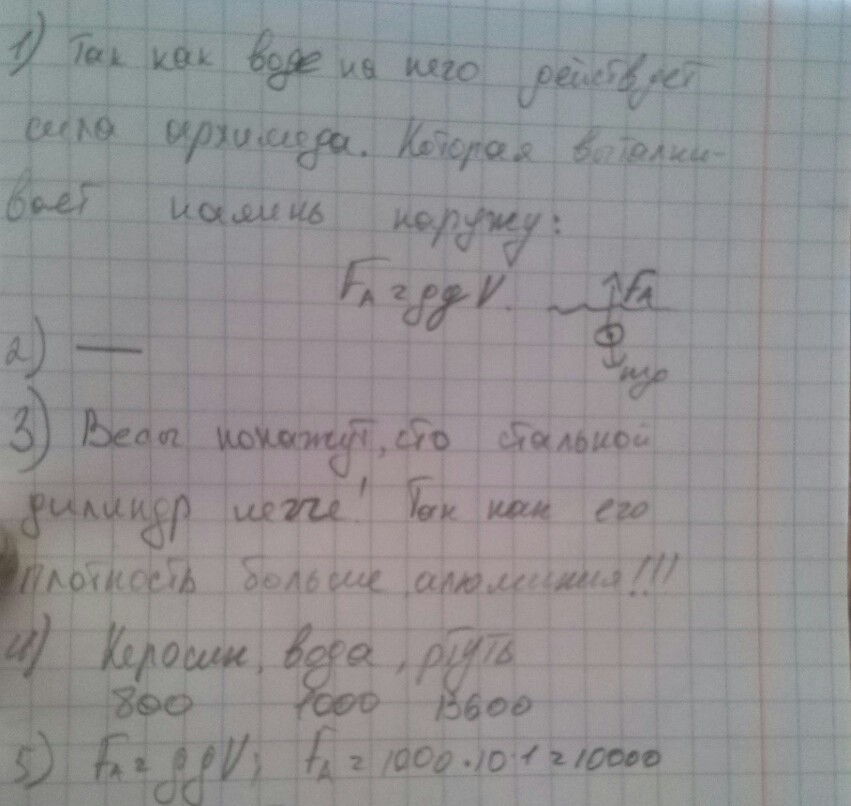 1) Так как воде на него действует
сила архимеда. Которая выталки-
вает камень наружу:
F_A = ρgV. F_A
mg
2) —
3) Весы покажут, сто стальной
цилиндр легче! Так как его
плотность больше алюминия!!!
4) Керосин, вода, ртуть
800 1000 13600
5) F_A = ρgV; F_A = 1000·10·1 = 10000